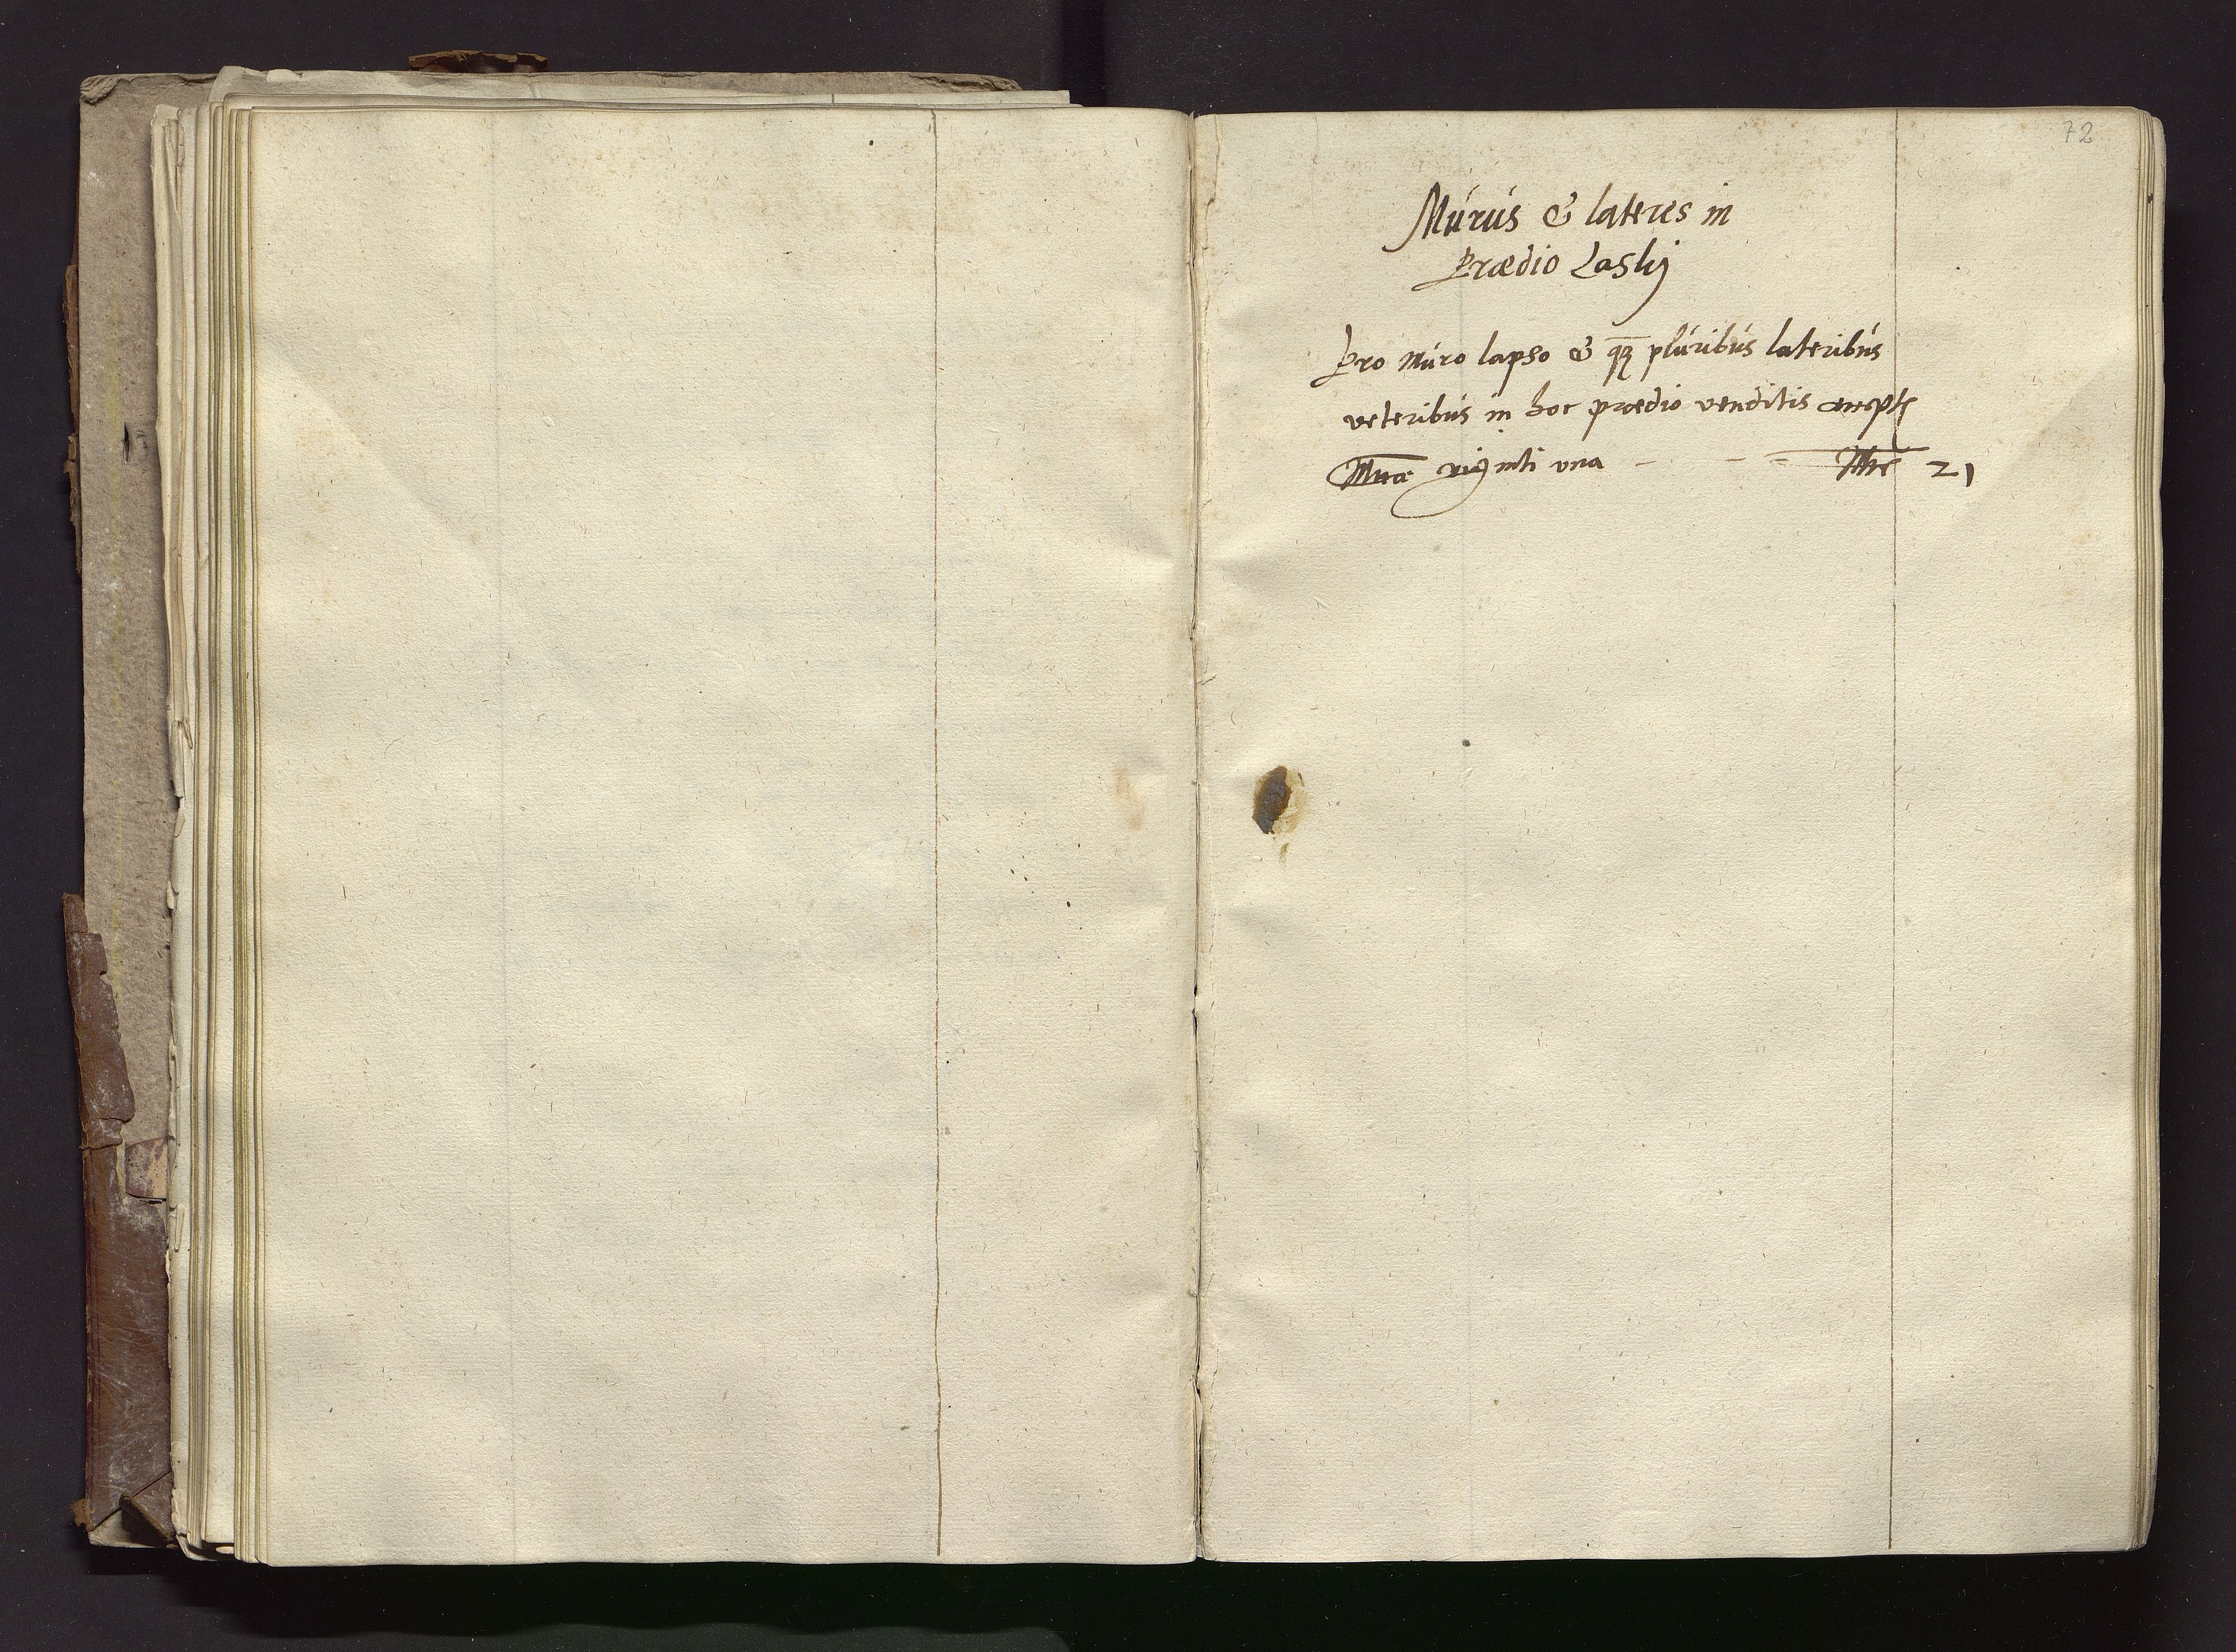 72
Murus & lateres in
Prædio Laskj
Pro Muro lapso & qꝫ pluribus lateribus
veteribus in hoc prædio venditis
Mrcæ viginti vna - - - Mrc 21